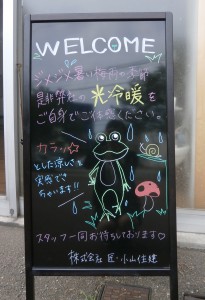 WELCOME
ジメジメ暑い梅雨の季節
是非弊社の光冷暖を
ご自身でご体感ください。
カラッ☆
とした涼しさを
実感でき
ちゃいます!!
スタッフ一同お待ちしております♡
株式会社 匠・小山住建